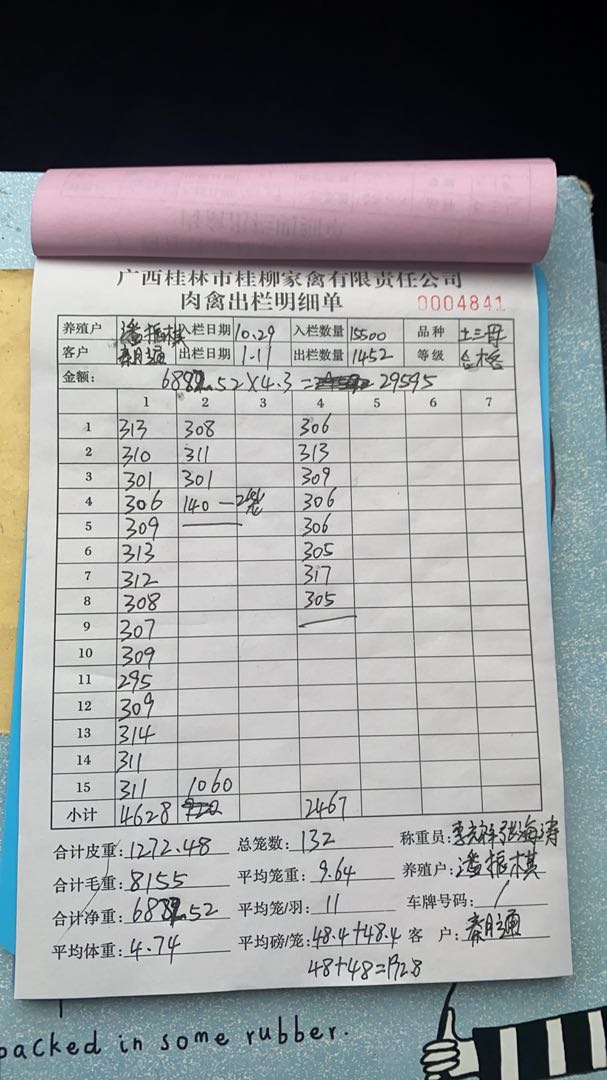 广西桂林市桂柳家禽有限责任公司
肉禽出栏明细单 0004841
养殖户 潘振棋 入栏日期 10.29 入栏数量 15500 品种 土三号
客户 秦月通 出栏日期 1.11 出栏数量 1452 等级 合格
金额: 6882.52×4.3= 29595
1 2 3 4 5 6 7
1 313 308 306
2 310 311 313
3 301 301 309
4 306 140 — 2笼 306
5 309 306
6 313 305
7 312 317
8 308 305
9 307
10 309
11 295
12 309
13 314
14 311
15 311 1060
小计 4628 2467
合计皮重: 1272.48 总笼数: 132 称重员: 张海涛
合计毛重: 8155 平均笼重: 9.64 养殖户: 潘振棋
合计净重: 6882.52 平均笼/羽: 11 车牌号码: /
平均体重: 4.74 平均磅/笼: 48.4+48.4 客户: 秦月通
48+48=
packed in some rubber.